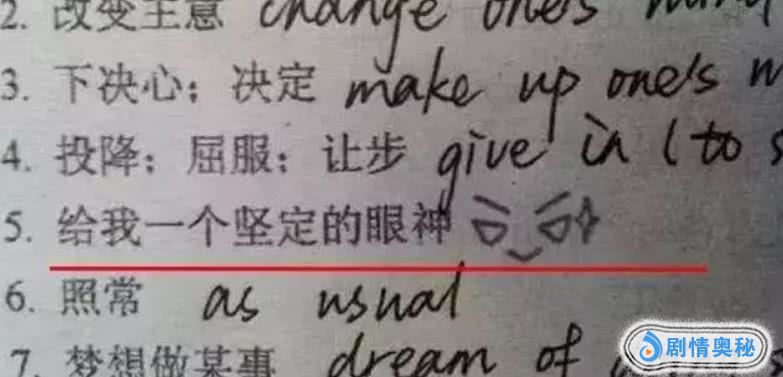 2. 改变主意 change one's mind
3. 下决心；决定 make up one's
4. 投降；屈服；让步 give in (to
5. 给我一个坚定的眼神
6. 照常 as usual
7. 梦想做某事 dream of
剧情奥秘